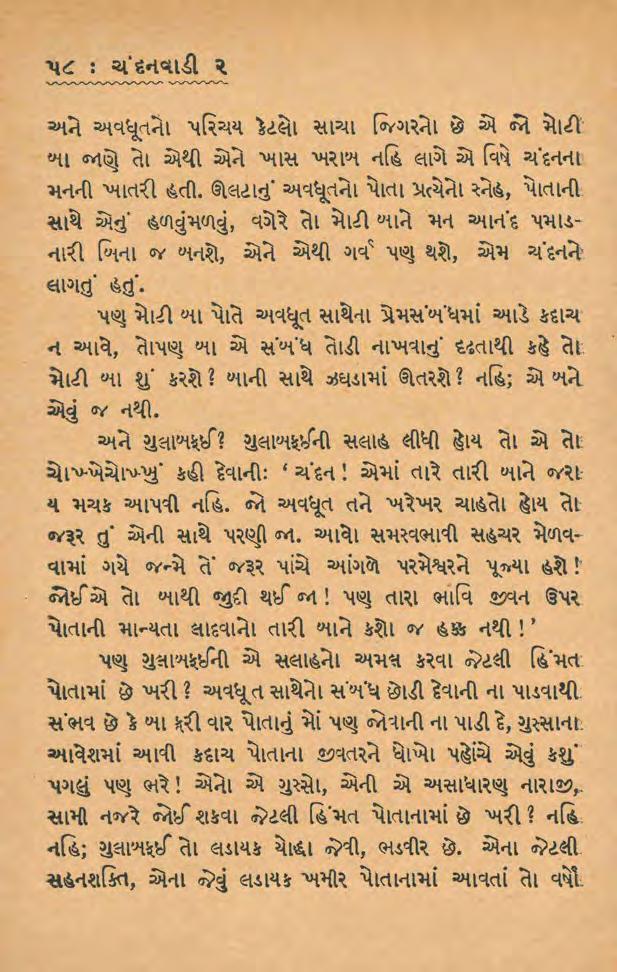 ૫૮ : ચંદનવાડી ૨
અને અવધૂતનો પરિચય કેટલો સાચા જિગરનો છે એ જો મોટી
બા જાણે તો એથી એને ખાસ ખરાબ નહિ લાગે એ વિષે ચંદનના
મનની ખાતરી હતી. ઊલટાનું અવધૂતનો પોતા પ્રત્યેનો સ્નેહ, પોતાની
સાથે એનું હળવુંમળવું, વગેરે તો મોટી બાને મન આનંદ પમાડ-
નારી બિના જ બનશે, એને એથી ગર્વ પણ થશે, એમ ચંદનને
લાગતું હતું.
પણ મોટી બા પોતે અવધૂત સાથેના પ્રેમસંબંધમાં આડે કદાચ
ન આવે, તોપણ બા એ સંબંધ તોડી નાખવાનું દૃઢતાથી કહે તો
મોટી બા શું કરશે? બાની સાથે ઝઘડામાં ઊતરશે? નહિ; એ બને
એવું જ નથી.
અને ગુલાબફઈ? ગુલાબફઈની સલાહ લીધી હોય તો એ તો
ચોખ્ખેચોખ્ખું કહી દેવાની: ‘ચંદન! એમાં તારે તારી બાને જરા
ય મચક આપવી નહિ. જો અવધૂત તને ખરેખર ચાહતો હોય તો
જરૂર તું એની સાથે પરણી જા. આવો સમસ્વભાવી સહચર મેળવ-
વામાં ગયે જન્મે તેં જરૂર પાંચે આંગળે પરમેશ્વરને પૂજ્યા હશે!
જોઈએ તો બાથી જુદી થઈ જા! પણ તારા ભાવિ જીવન ઉપર
પોતાની માન્યતા લાદવાનો તારી બાને કશો જ હક્ક નથી!’
પણ ગુલાબફઈની એ સલાહનો અમલ કરવા જેટલી હિંમત
પોતામાં છે ખરી? અવધૂત સાથેનો સંબંધ છોડી દેવાની ના પાડવાથી
સંભવ છે કે બા ફરી વાર પોતાનું મોં પણ જોવાની ના પાડી દે, ગુસ્સાના
આવેશમાં આવી કદાચ પોતાના જીવતરને ધોખો પહોંચે એવું કશું
પગલું પણ ભરે! એનો એ ગુસ્સો, એની એ અસાધારણ નારાજી,
સામી નજરે જોઈ શકવા જેટલી હિંમત પોતાનામાં છે ખરી? નહિ
નહિ; ગુલાબફઈ તો લડાયક યોદ્ધા જેવી, ભડવીર છે. એના જેટલી
સહનશક્તિ, એના જેવું લડાયક ખમીર પોતાનામાં આવતાં તો વર્ષો